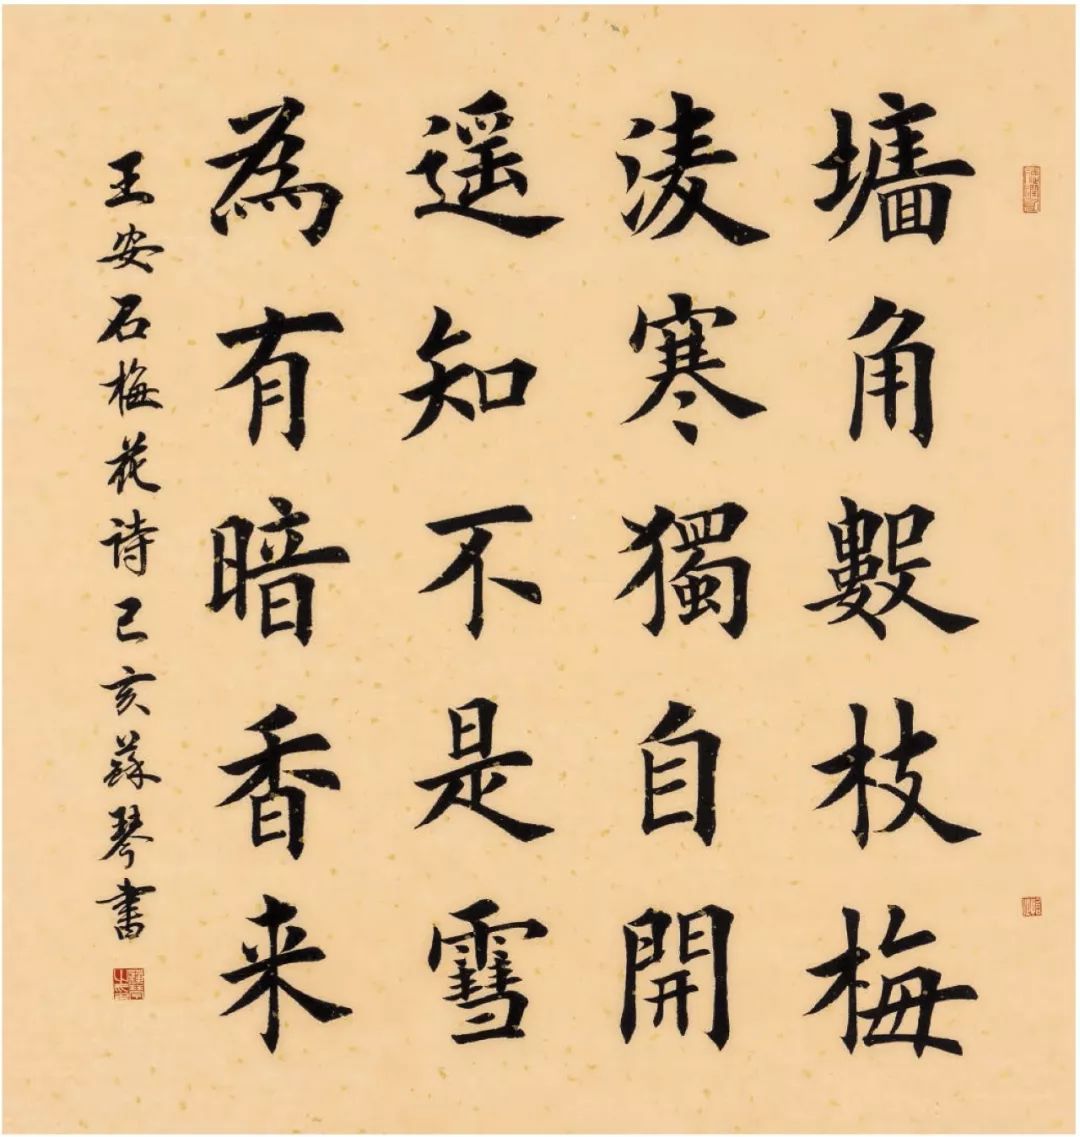 墻角數枝梅
淩寒獨自開
遥知不是雪
為有暗香来
王安石梅花诗己亥蘇琴書